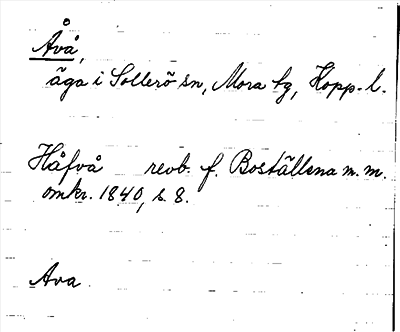 Åvå,
äga i Sollerö sn, Mora tg, Kopp. l.
Håfvå revb. f. Boställena m.m.
omkr. 1840, s. 8.
Ava